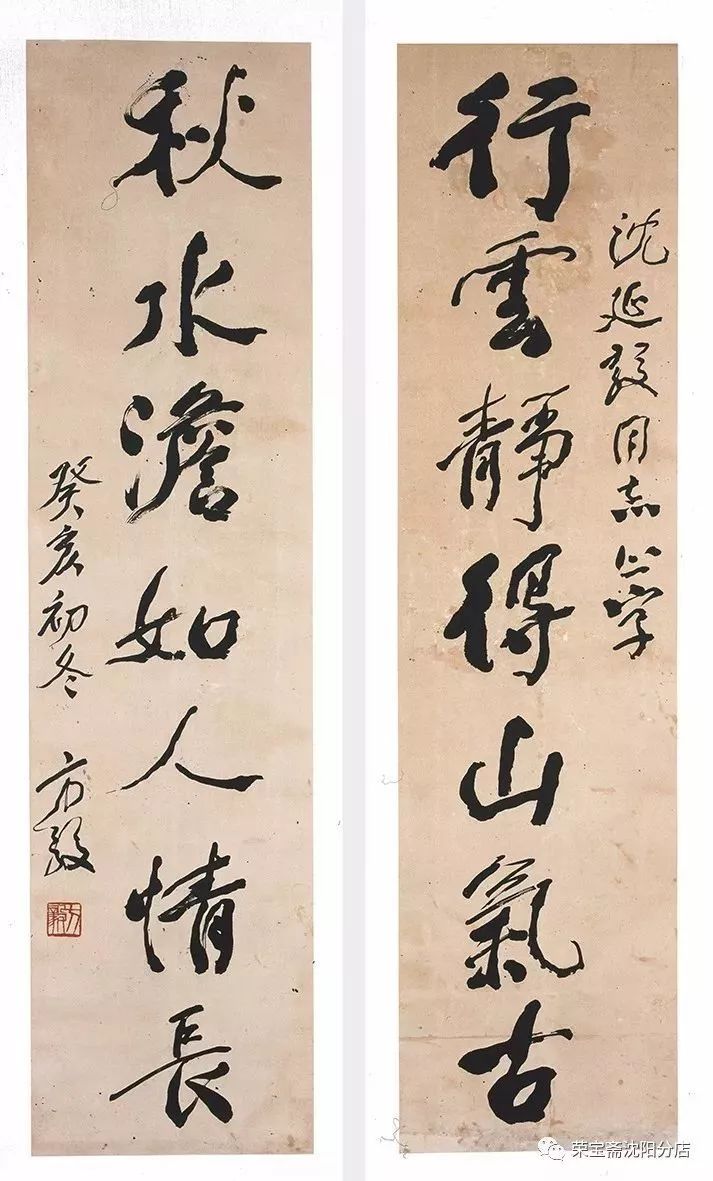 沈延毅同志正字
行雲靜得山氣古
秋水澹如人情長
癸亥初冬 方毅
方毅
荣宝斋沈阳分店